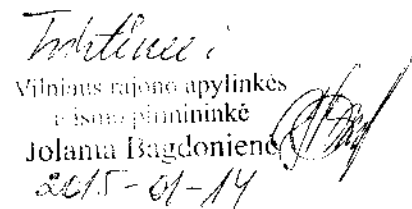 Tvirtinu:
Vilniaus rajono apylinkės
teismo pirmininkė
Jolanta Bagdonienė
2015-01-14